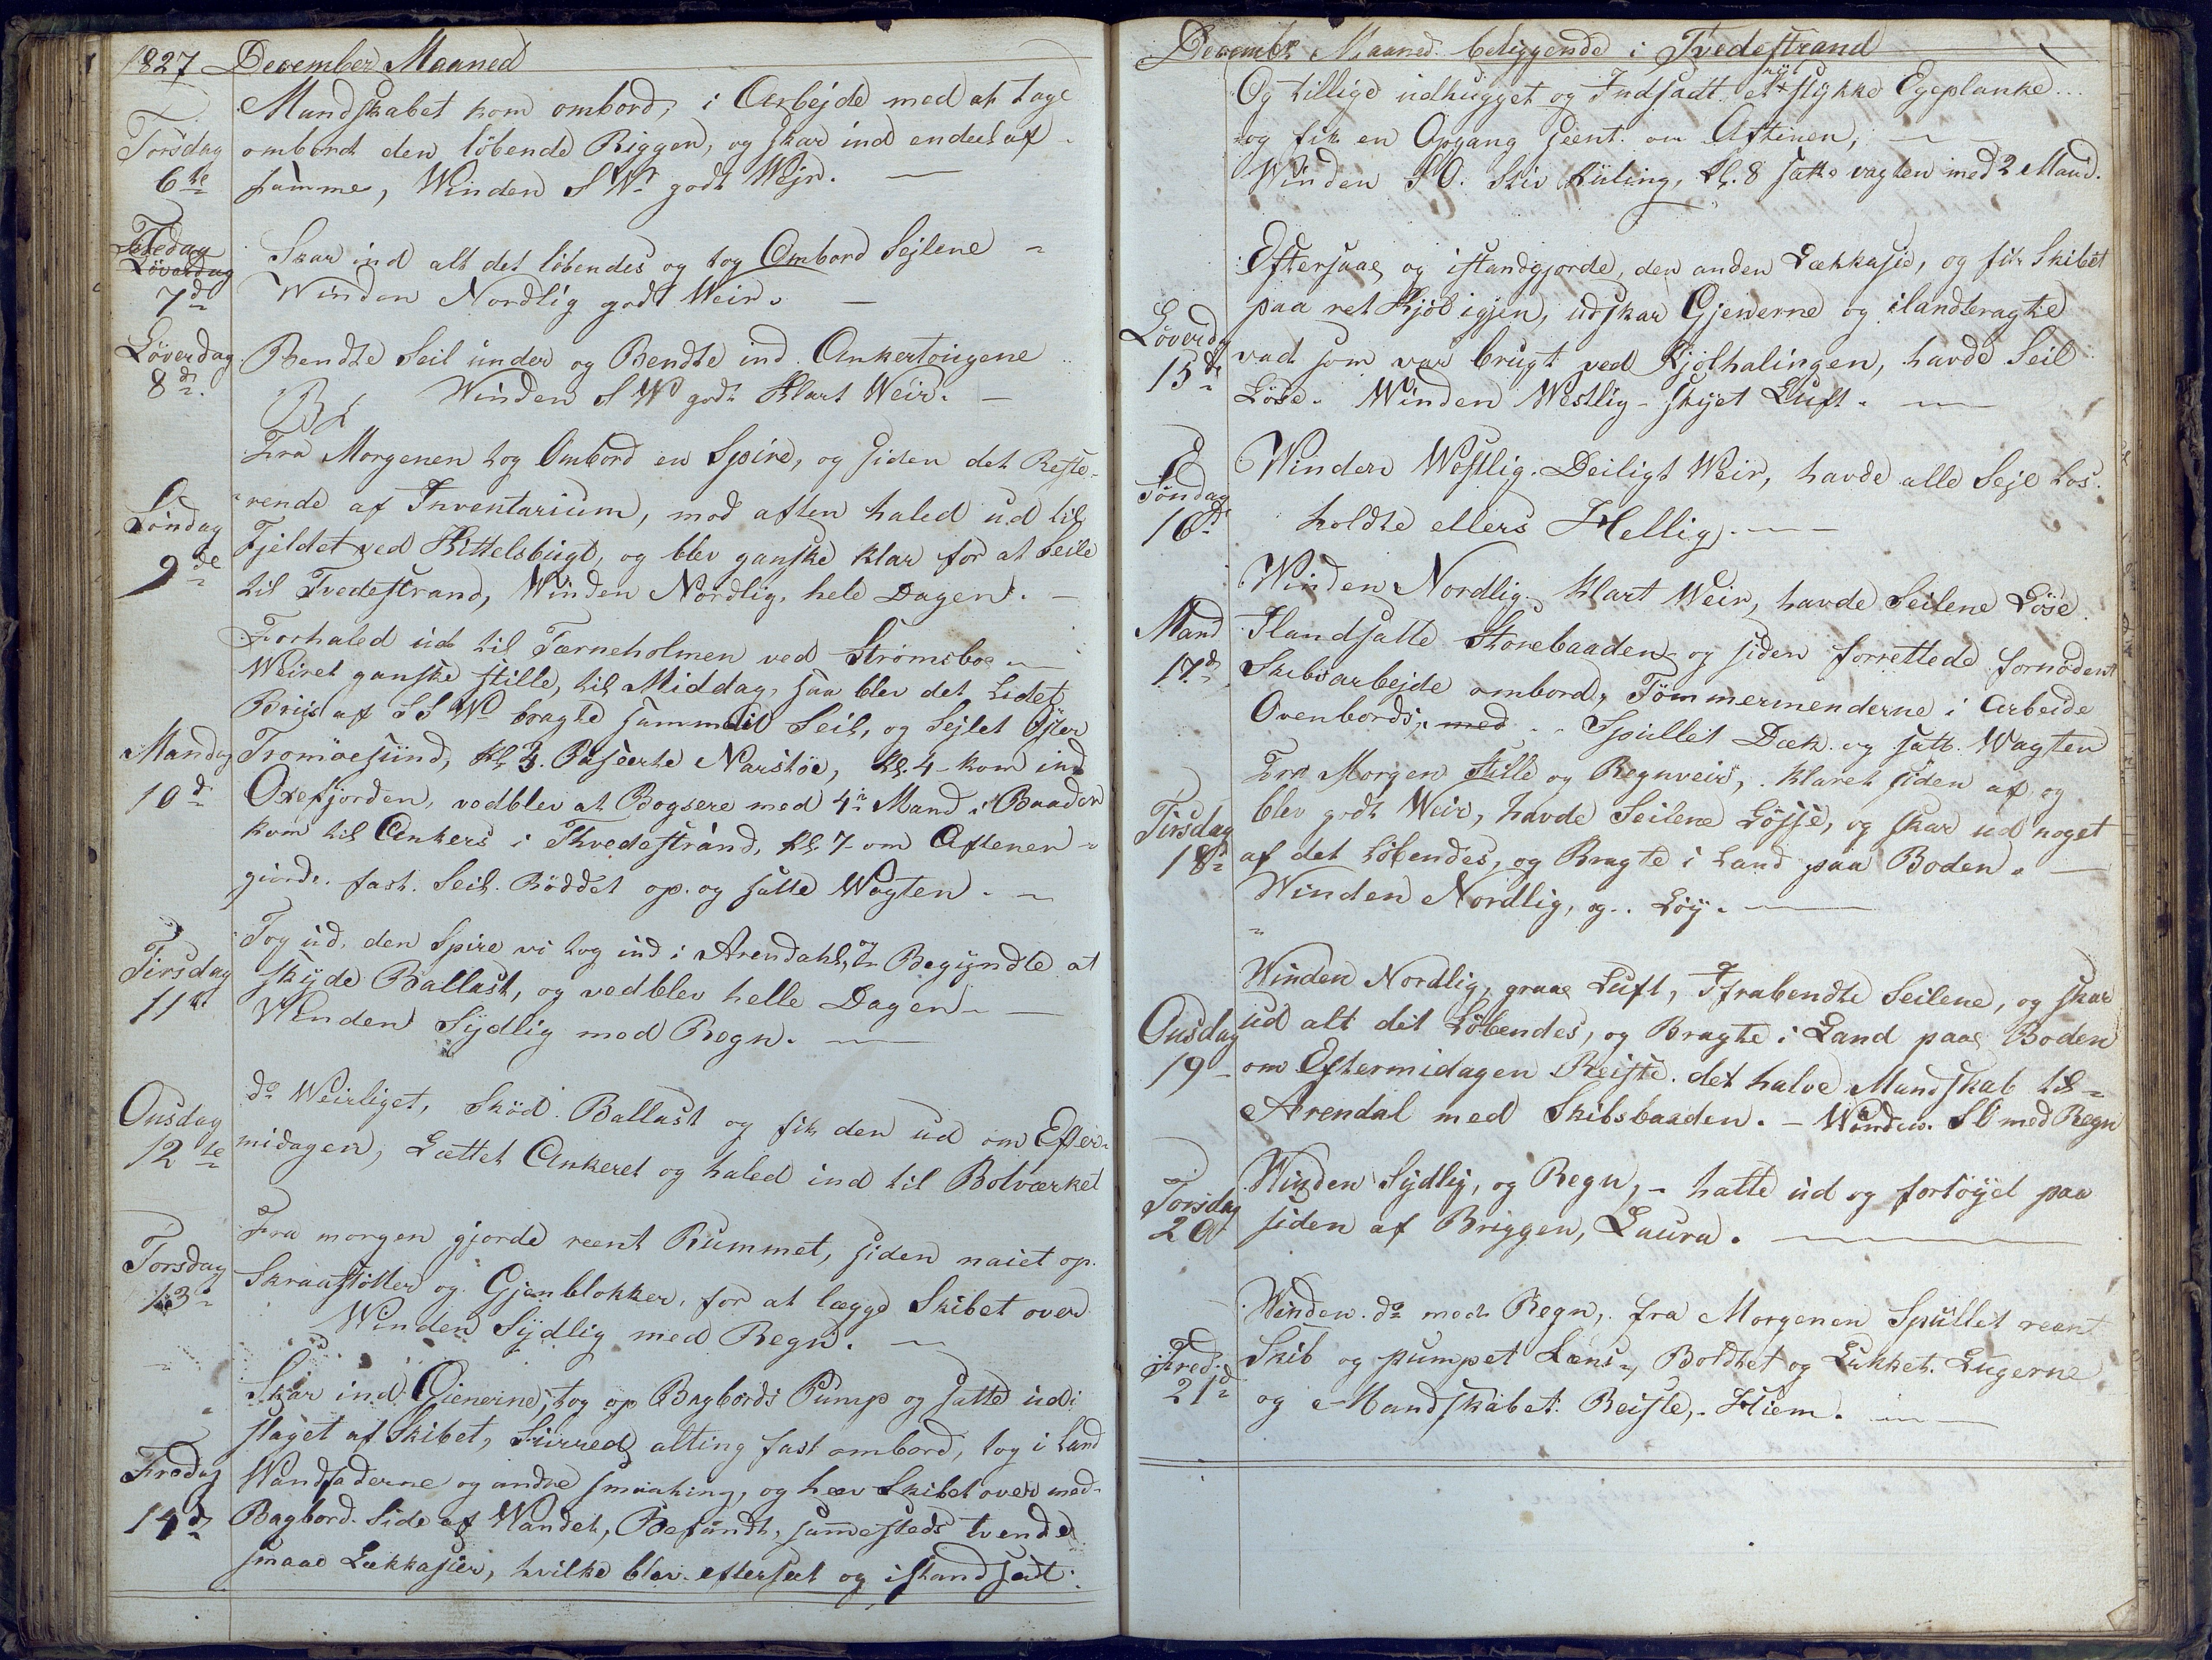 1827 December Maaned
Mandskabet kom ombord, i Arbejde med at tage
Torsdag ombord den löbende Riggen, og skar ind endeel af
6te samme, Winden S W godt Wejr. —
Fredag
Löverdag Skar ind alt det löbendes og tog Ombord Sejlene
7d Winden Nordlig godt Weir. —
Löverdag Bendte Seil under og Bendte ind Ankertougene
8d. Winden S W godt Klart Weir. —
Fra Morgenen tog Ombord en Spire, og siden det Reste-
Söndag rende af Inventarium, mod aften haled ud til
9de Fjeldet ved Kittelsbugt, og blev ganske klar for at Seile
til Tvedestrand, Winden Nordlig, hele Dagen. —
Forhaled ud til Tærneholmen ved Strömsboe
Weiret ganske stille, til Middag, saa blev det Lidet
Bris af S S W bragte samme til Seil, og Sejlet Öster
Mandag Tromöesund, Kl 3. Paserte Narstöe, Kl. 4 kom ind
10d Oxefjorden, vedblev at Bogsere med 4re Mand i Baaden
kom til Ankers i Thvedestrand, kl. 7 om Aftenen
giorde fast Seil. Röddet op og satte Wagten. —
Tog ud, den Spire vi tog ind i Arendahl, og Begyndte at
Tirsdag skyde Ballast, og vedblev helle Dagen —
11te Winden Sydlig med Regn. —
do Weirliget, Sköd Ballast og fik den ud om Efter-
Onsdag
12te midagen, Lættet Ankeret og haled ind til Bolværket
Fra morgen gjorde reent Rummet, siden naiet op
Torsdag Skraastötter og Gjenblokker, for at lægge Skibet over
13 Winden Sydlig med Regn. —
Skar ind Gienerne, tog op Bagbords Pump og satte udi
staget af Skibet, Surred alting fast ombord, tog i Land
Fredag Wandfaderne og andre smaating, og hæv Skibet over med
14d Bagbord Side af Wandet, Befandt, sammesteds tvende
smaae Lækkasier, hvilke blev efterseet og istandsadt.
December Maaned beliggende i Tvedestrand
Og tillige udhugget og Indsadt et nyt stykke Egeplanke
og fik en Opgang seent om Aftenen, —
Winden S O. Stiv Kuling, Kl. 8 satte vagten med 2 Mand.
Eftersaae og istandgjorde, den anden Lækkasie, og fik Skibet
paa ret Kjöl igjen, udskar Gjenerne og ilandbragte
Löverdg
15de vad som var brugt ved Kjölhalingen, havde Seil
Löse. Winden Westlig - skyet Luft. —
Winden Westlig. Deiligt Weir, havde alle Sejl Los.
Söndag
16d holdte ellers Hellig. —
Winden Nordlig. Klart Weir, havde Seilene Löse.
Mand Ilandsatte Storebaaden og siden forrettede fornödent
17d Skibsarbejde ombord, Tömmermenderne i Arbeide
Ovenbords, med Spullet Dæk og satte Wagten
Fra Morgen stille og Regnveir, klaret siden af og
Tirsdag blev godt Weir, havde Seilene Lösse, og skar ud noget
18d af det Löbendes, og Bragte i Land paa Boden. —
Winden Nordlig, og Löy. —
Winden Nordlig, graae Luft, Ifrabendte Seilene, og skar
Onsdag ud alt det Löbendes, og Bragte i Land paae Boden
19 om Eftermidagen Reiste det halve Mandskab til
Arendal med Skibsbaaden. — Winden SO med Regn
Torsdag Winden Sydlig, og Regn, — hatte ud og fortöyd paa
20 siden af Briggen, Laura. —
Winden do med Regn, fra Morgenen Spullet reent
Fred: Skib og pumpet Læns, Boldtet og Lukket Lugerne
21d og Mandskabet Reiste, Hiem. —